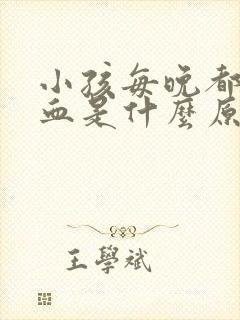 小孩每晚都
血是什麼原
王學斌